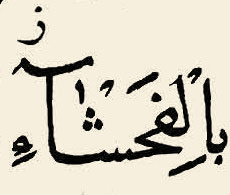 ز
بِالْفَحْشَآءِ